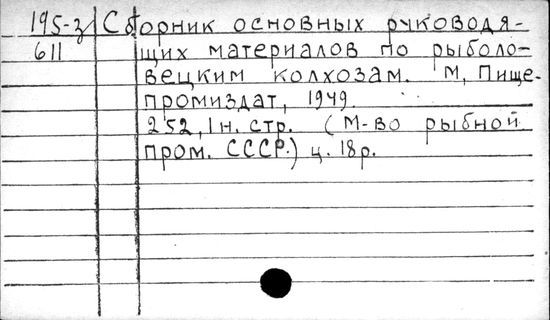 195-з Сборник основных руководя-
611 щих материалов по рыболо-
вецким колхозам. М, Пище-
промиздат, 1949.
252, 1 н. стр. (М-во рыбной
пром. СССР.) ц. 18р.